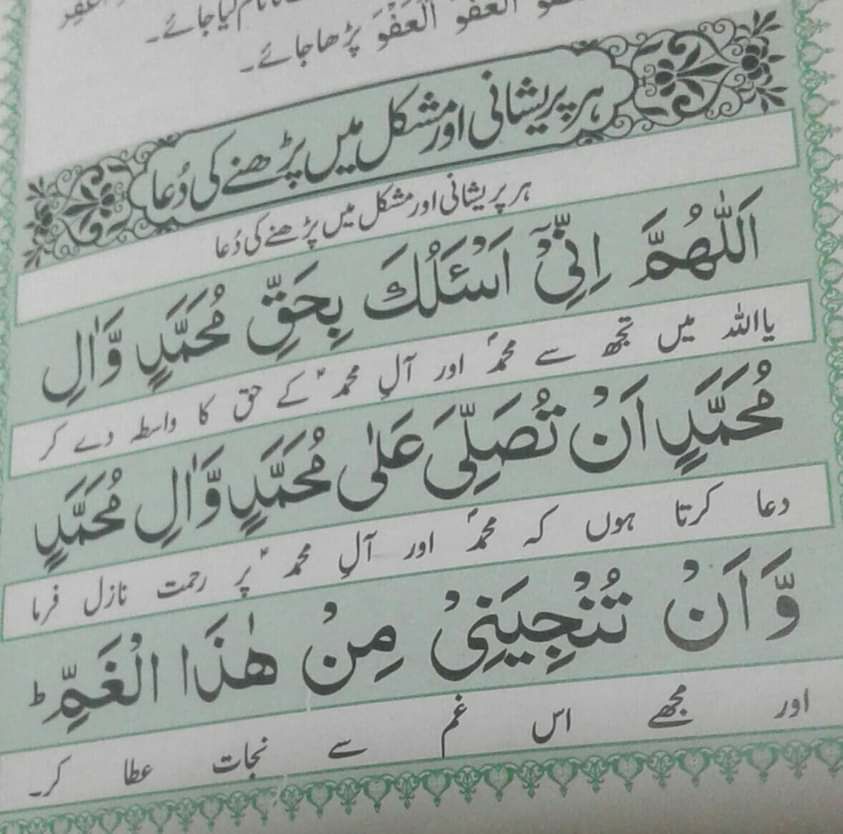 نام لیا جائے۔
العفو العفو پڑھا جائے۔
ہر پریشانی اور مشکل میں پڑھنے کی دُعا
ہر پریشانی اور مشکل میں پڑھنے کی دُعا
اَللّٰهُمَّ اِنِّیْۤ اَسْئَلُكَ بِحَقِّ مُحَمَّدٍ وَّاٰلِ
یااللہ میں تجھ سے محمدؐ اور آلِ محمدؑ کے حق کا واسطہ دے کر
مُحَمَّدٍ اَنْ تُصَلِّیَ عَلٰی مُحَمَّدٍ وَّاٰلِ مُحَمَّدٍ
دعا کرتا ہوں کہ محمدؐ اور آلِ محمدؑ پر رحمت نازل فرما
وَّ اَنْ تُنْجِیَنِیْ مِنْ هٰذَا الْغَمِّ ؕ
اور مجھے اس غم سے نجات عطا کر۔